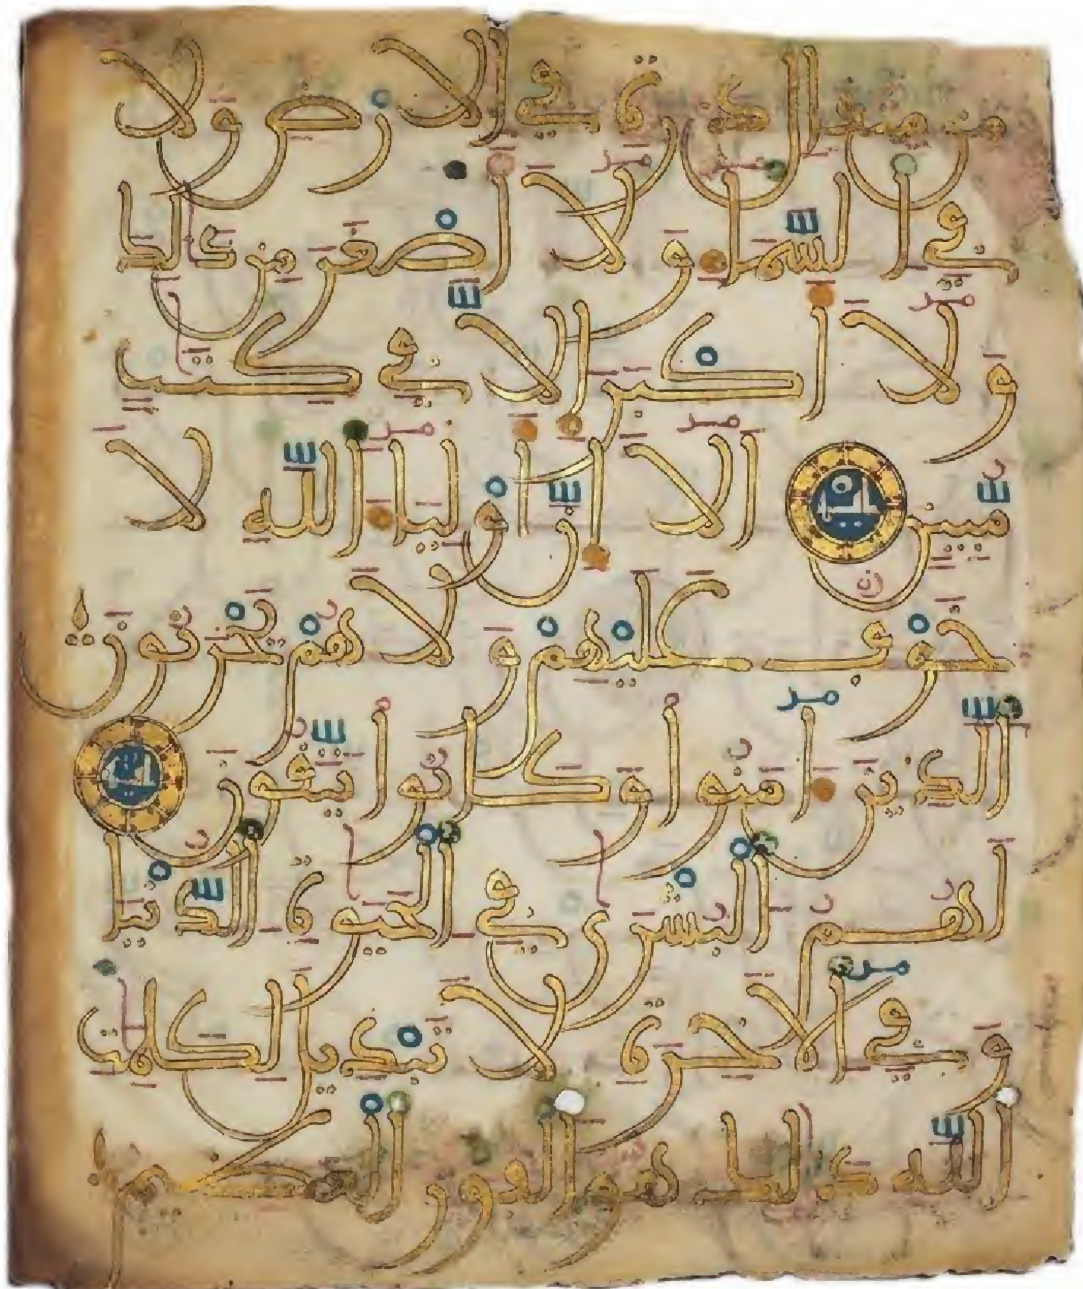 مِن مِّثْقَالِ ذَرَّةٍ فِي الْأَرْضِ وَلَا
فِي السَّمَاءِ وَلَا أَصْغَرَ مِن ذَٰلِكَ
وَلَا أَكْبَرَ إِلَّا فِي كِتَٰبٍ
مُّبِينٍ أَلَا إِنَّ أَوْلِيَاءَ اللَّهِ لَا
خَوْفٌ عَلَيْهِمْ وَلَا هُمْ يَحْزَنُونَ
الَّذِينَ ءَامَنُوا وَكَانُوا يَتَّقُونَ
لَهُمُ الْبُشْرَىٰ فِي الْحَيَوٰةِ الدُّنْيَا
وَفِي الْأَخِرَةِ لَا تَبْدِيلَ لِكَلِمَٰتِ
اللَّهِ ذَٰلِكَ هُوَ الْفَوْزُ الْعَظِيمُ